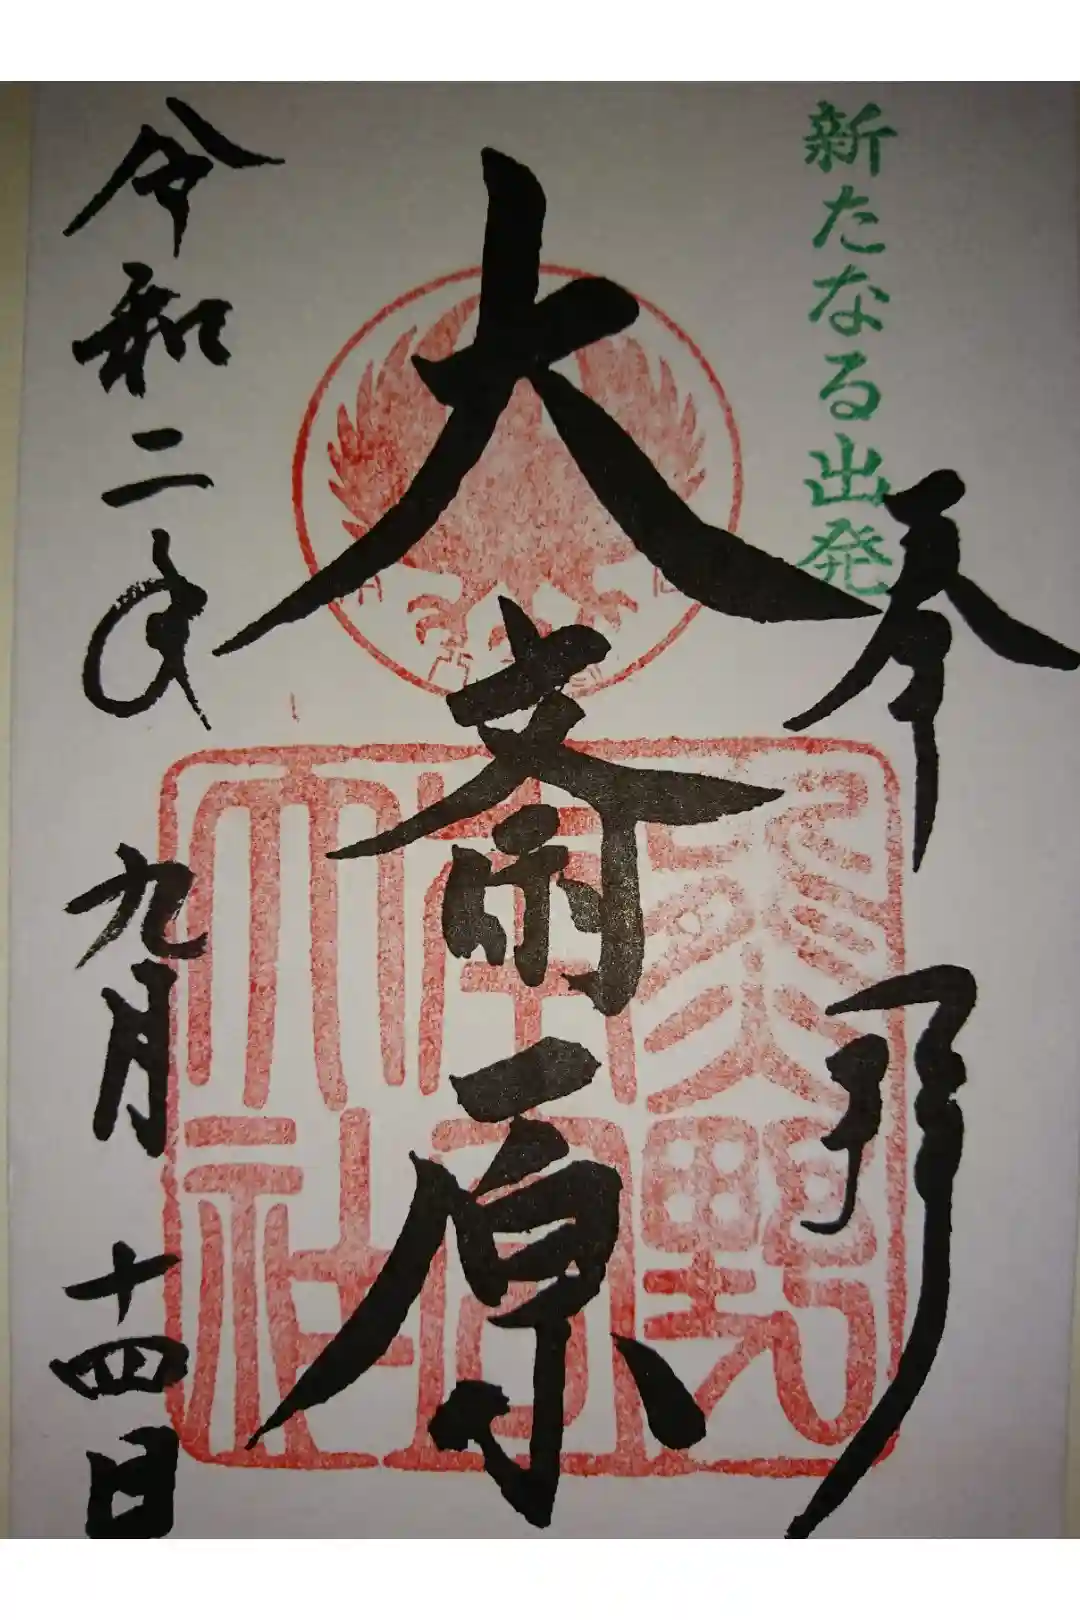 新たなる出発
奉拝
大斎原
熊野
住吉
大社
令和二年九月十四日